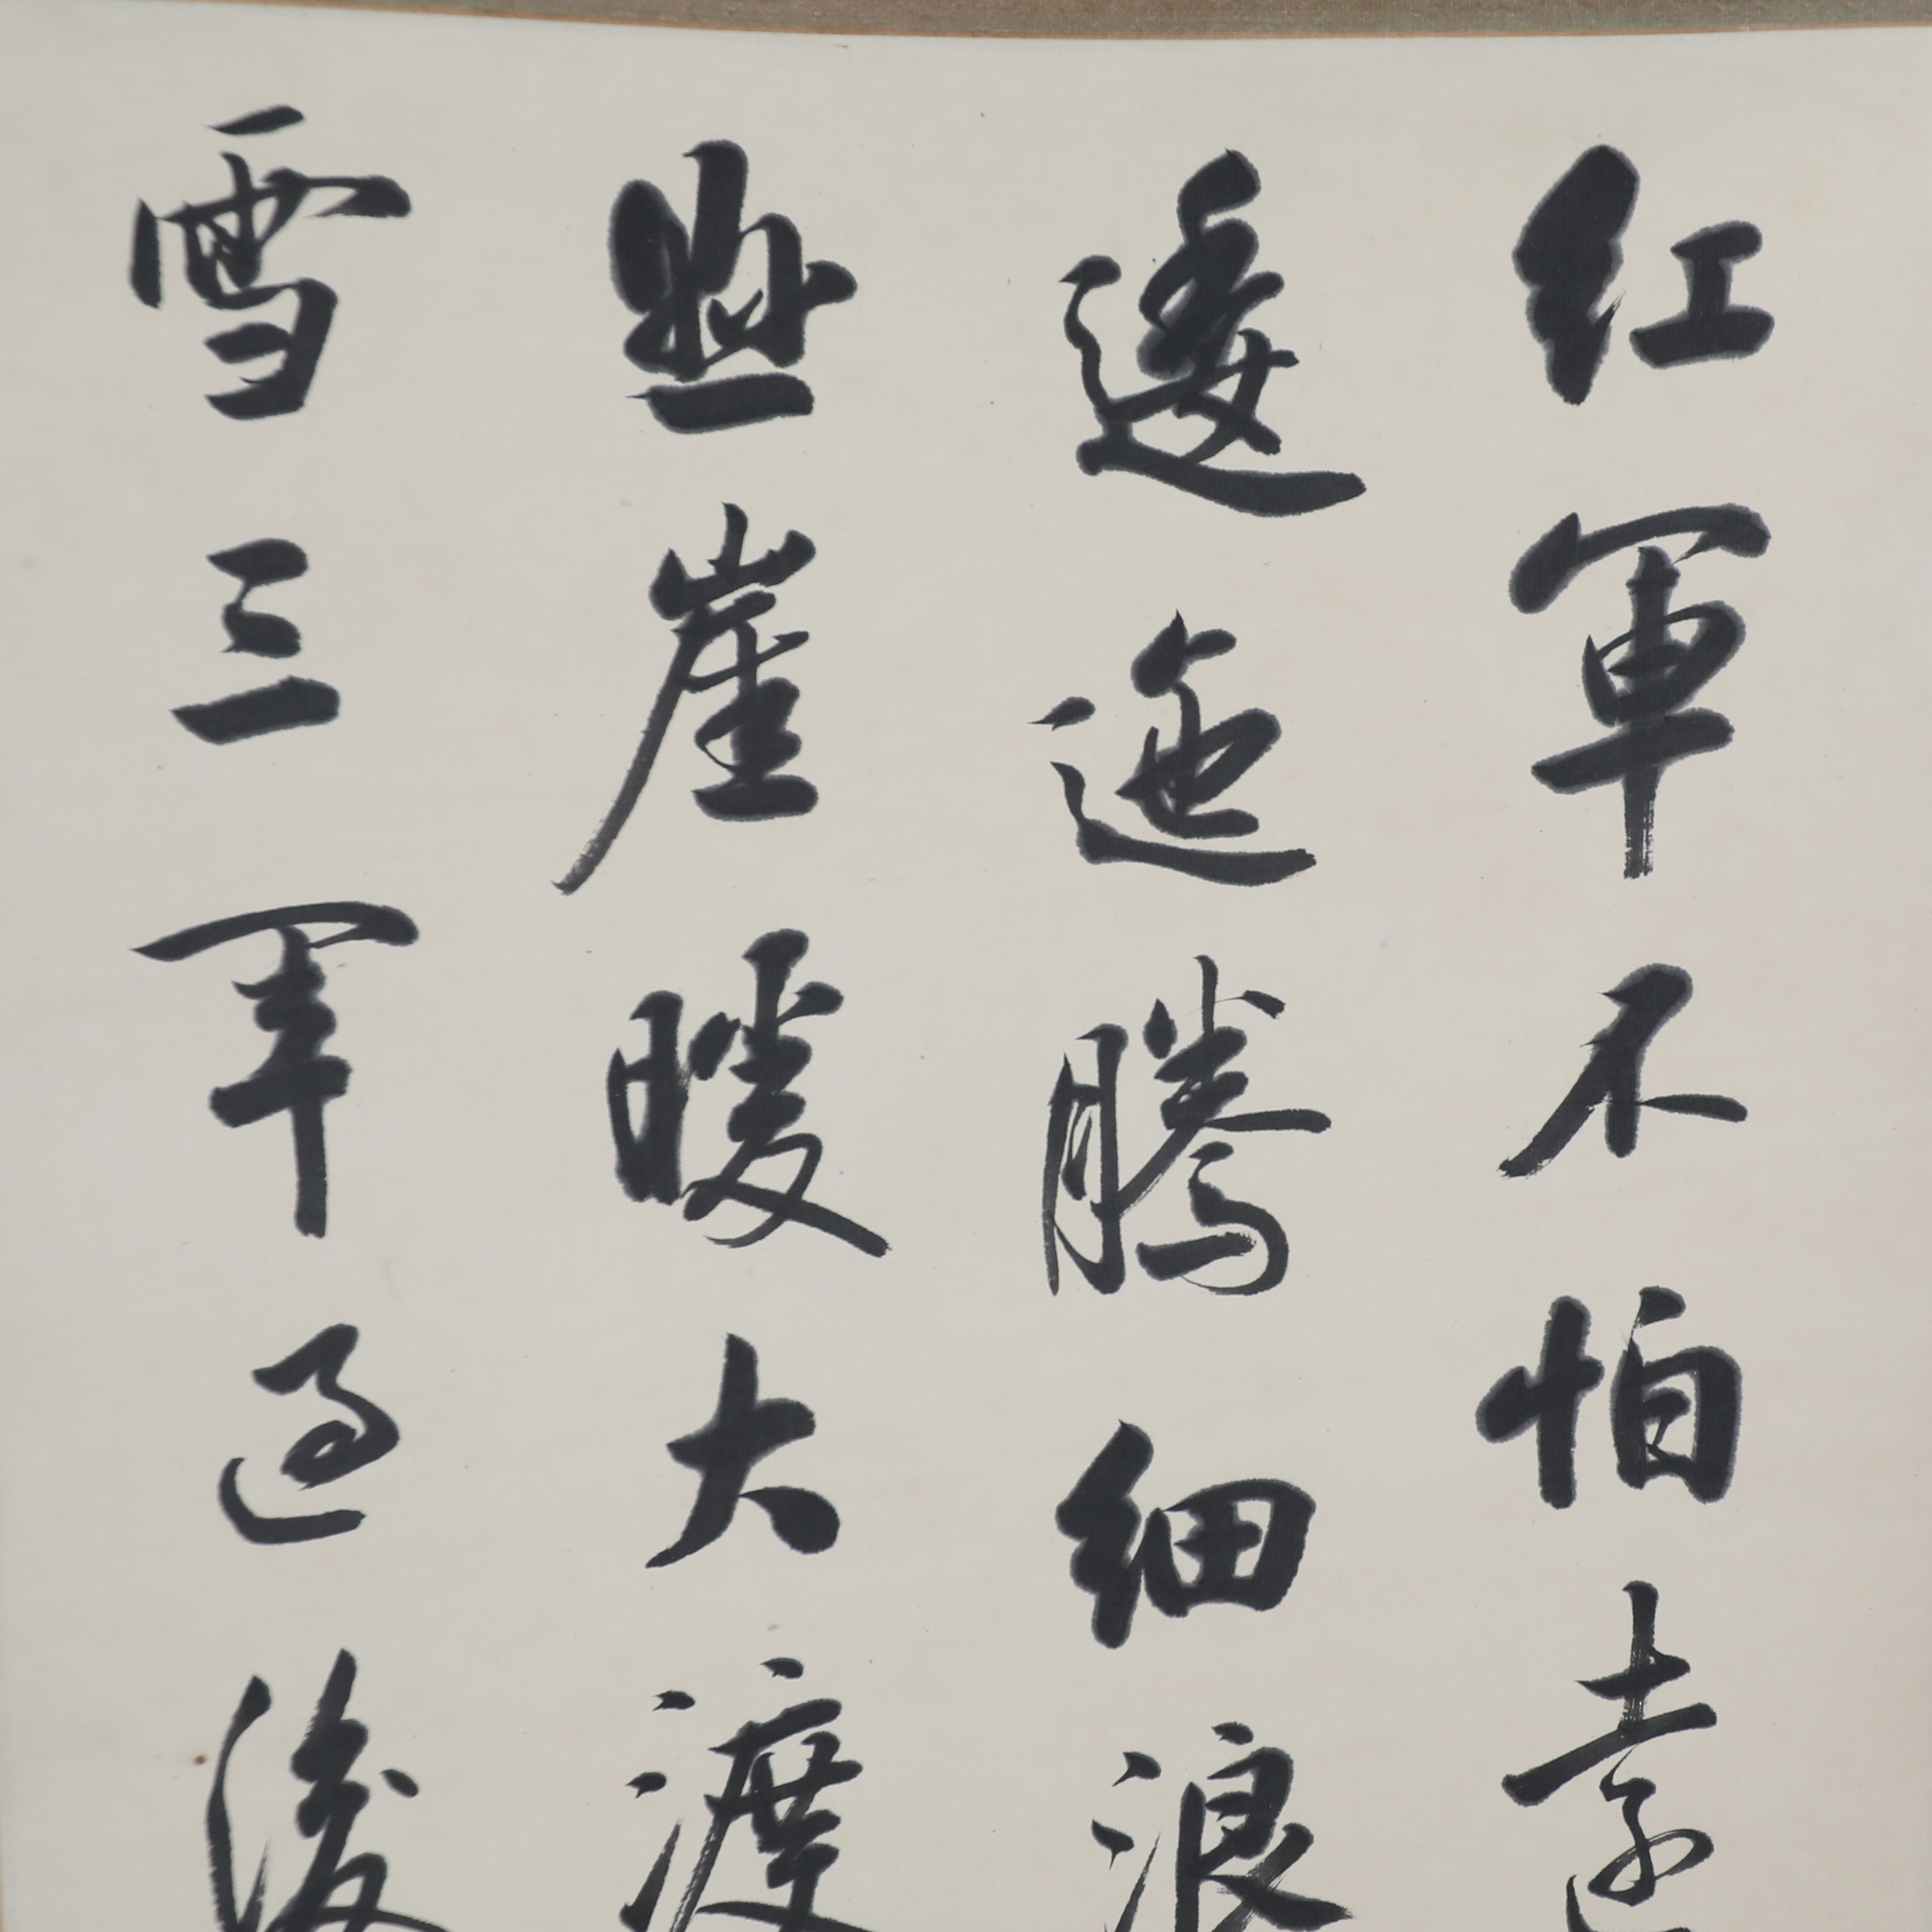 紅軍不怕遠
逶迤騰細浪
拍崖暖大渡
雪三軍過後